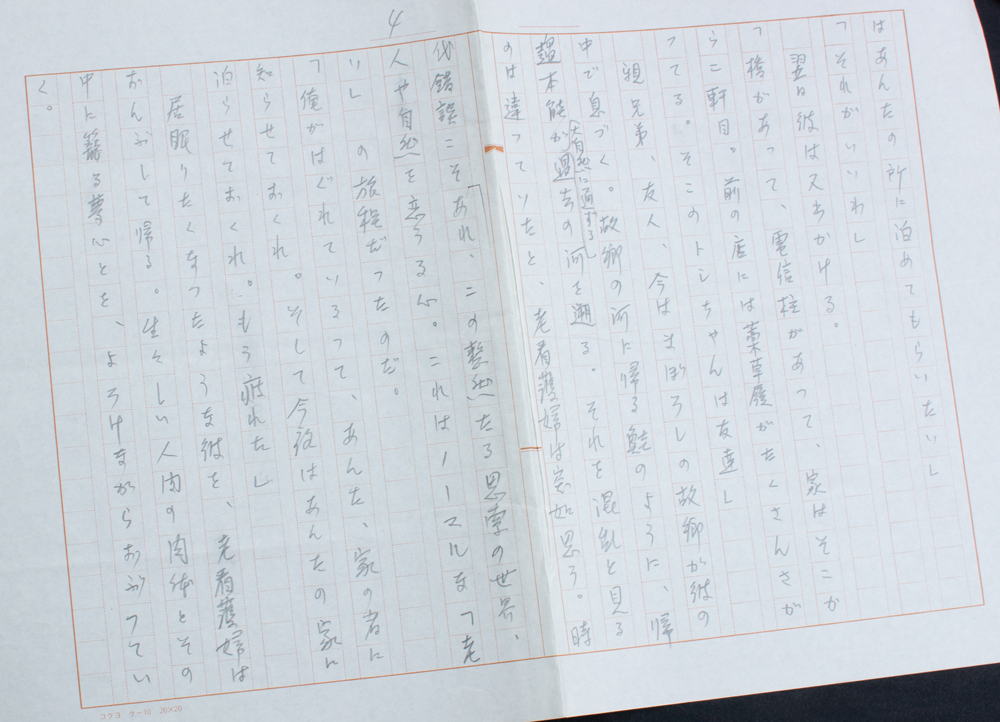 4
はあんたの所に泊めてもらいたい」
「それがいいわ」
翌日彼は又出かける。
「橋があって、電信柱があって、家はそこか
ら二軒目。前の店には藁草履がたくさんさが
ってる。そこのトシちゃんは友達」
親兄弟、友人、今はまぼろしの故郷が彼の
中で息づく。故郷の河に帰る鮭のように、帰
趨本能が過去の河を遡る。それを混乱と見る
(大自然に通ずる)
のは違っていたと、老看護婦は突如思う。時
代錯誤こそあれ、「この整然たる思索の世界、
人や自然を恋うる心。これはノーマルな「老
い」の旅程だったのだ。
「俺がはぐれているって、あんた、家の者に
知らせておくれ。そして今夜はあんたの家に
泊らせておくれ。もう疲れた」
居眠りたくなったような彼を、老看護婦は
おんぶして帰る。生々しい人肉の肉体とその
中に籠る夢心とを、よろけながらおぶってい
く。
コクヨ ケー10 20×20